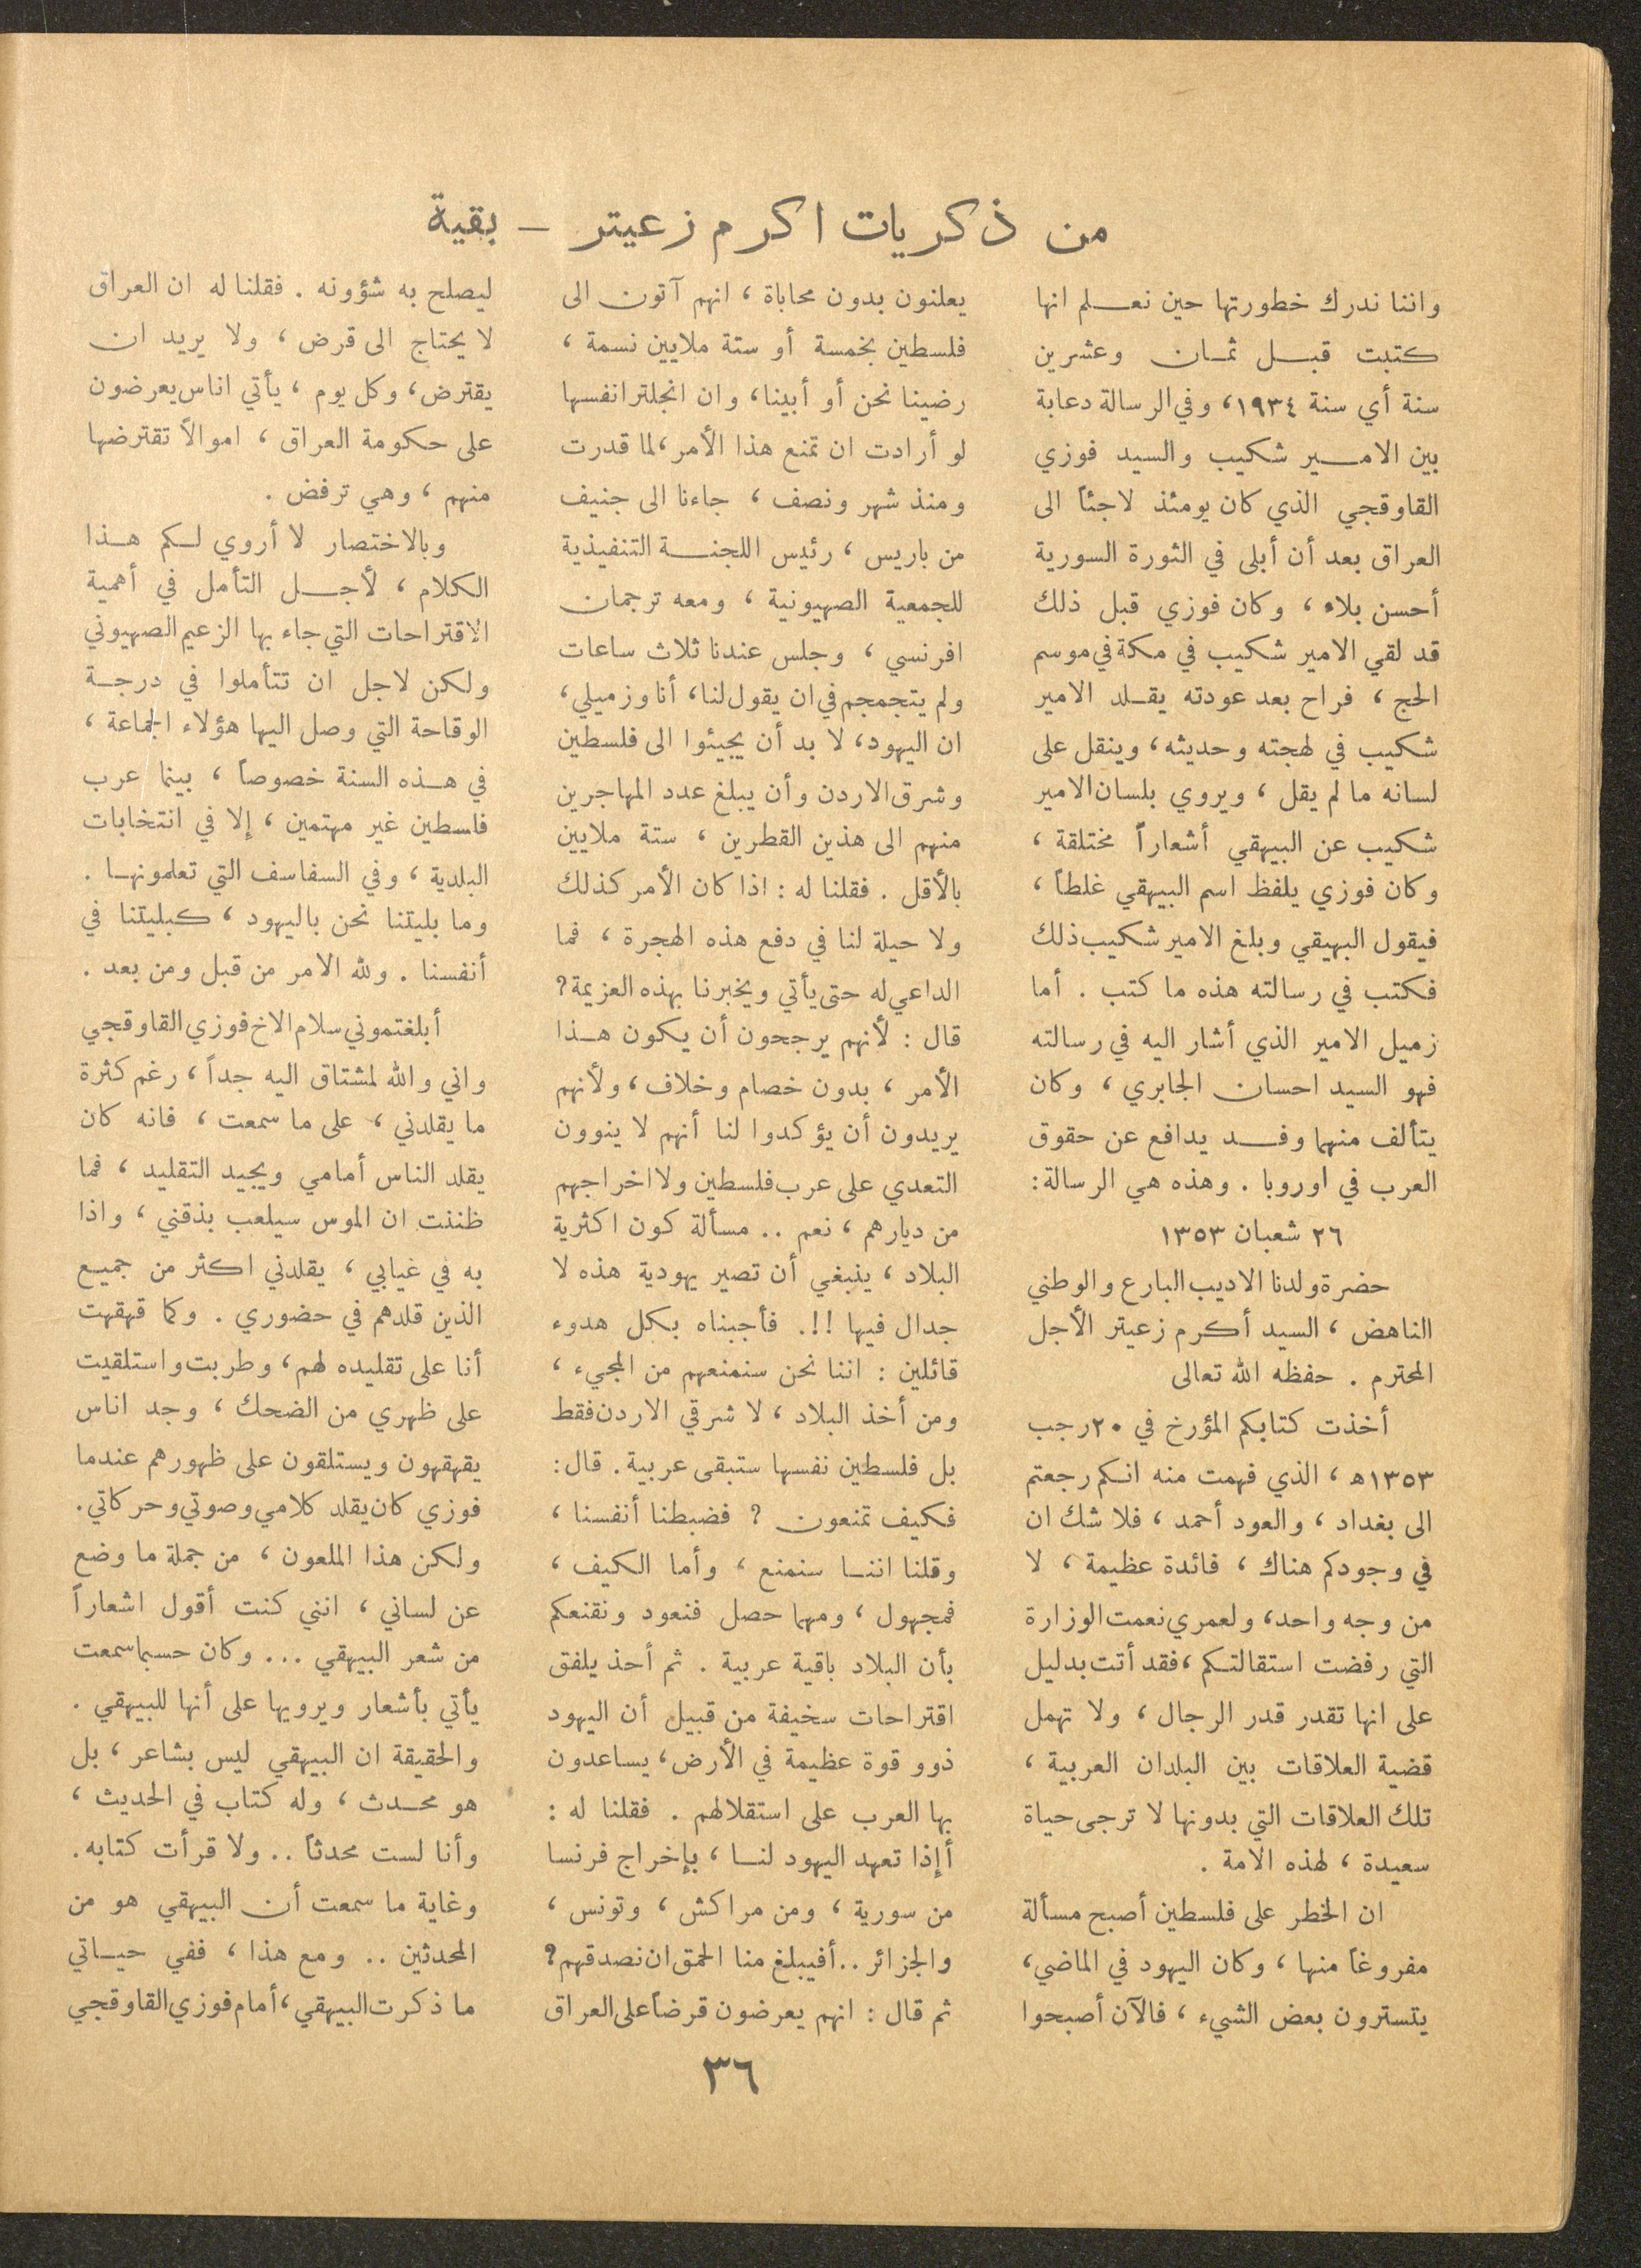 من ذكريات اكرم زعيتر - بقية
واننا ندرك خطورتها حين نعلم انها
كتبت قبل ثمان وعشرين
سنة أي سنة ١٩٣٤، وفي الرسالة دعابة
بين الامير شكيب والسيد فوزي
القاوقجي الذي كان يومئذ لاجئاً الى
العراق بعد أن أبلى في الثورة السورية
أحسن بلاء ، وكان فوزي قبل ذلك
قد لقي الامير شكيب في مكة في موسم
الحج ، فراح بعد عودته يقلد الامير
شكيب في لهجته وحديثه، وينقل على
لسانه ما لم يقل ، ويروي بلسان الامير
شكيب عن البيهقي أشعاراً مختلقة ،
وكان فوزي يلفظ اسم البيهقي غلطاً ،
فيقول البهيقي وبلغ الامير شكيب ذلك
فكتب في رسالته هذه ما كتب . أما
زميل الامير الذي أشار اليه في رسالته
فهو السيد احسان الجابري ، وكان
يتألف منهما وفد يدافع عن حقوق
العرب في اوروبا . وهذه هي الرسالة:
٢٦ شعبان ١٣٥٣
حضرة ولدنا الاديب البارع والوطني
الناهض ، السيد أكرم زعيتر الأجل
المحترم . حفظه الله تعالى
أخذت كتابكم المؤرخ في ٢٠ رجب
١٣٥٣ه ، الذي فهمت منه انكم رجعتم
الى بغداد ، والعود أحمد ، فلا شك ان
في وجودكم هناك ، فائدة عظيمة ، لا
من وجه واحد، ولعمري نعمت الوزارة
التي رفضت استقالتكم ، فقد أتت بدليل
على انها تقدر قدر الرجال ، ولا تهمل
قضية العلاقات بين البلدان العربية ،
تلك العلاقات التي بدونها لا ترجى حياة
سعيدة ، لهذه الامة .
ان الخطر على فلسطين أصبح مسألة
مفروغاً منها ، وكان اليهود في الماضي،
يتسترون بعض الشيء ، فالآن أصبحوا
يعلنون بدون محاباة ، انهم آتون الى
فلسطين بخمسة أو ستة ملايين نسمة ،
رضينا نحن أو أبينا، وان انجلترا نفسها
لو أرادت ان تمنع هذا الأمر، لما قدرت
ومنذ شهر ونصف ، جاءنا الى جنيف
من باريس ، رئيس اللجنة التنفيذية
للجمعية الصهيونية ، ومعه ترجمان
افرنسي ، وجلس عندنا ثلاث ساعات
ولم يتجمجم في ان يقول لنا، أنا وزميلي،
ان اليهود، لا بد أن يجيئوا الى فلسطين
وشرق الاردن وأن يبلغ عدد المهاجرين
منهم الى هذين القطرين ، ستة ملايين
بالأقل . فقلنا له : اذا كان الأمر كذلك
ولا حيلة لنا في دفع هذه الهجرة ، فما
الداعي له حتى يأتي ويخبرنا بهذه العزيمة؟
قال : لأنهم يرجحون أن يكون هذا
الأمر ، بدون خصام وخلاف ، ولأنهم
يريدون أن يؤكدوا لنا أنهم لا ينوون
التعدي على عرب فلسطين ولا اخراجهم
من ديارهم ، نعم .. مسألة كون اكثرية
البلاد ، ينبغي أن تصير يهودية هذه لا
جدال فيها !!. فأجبناه بكل هدوء
قائلين : اننا نحن سنمنعهم من المجيء ،
ومن أخذ البلاد ، لا شرقي الاردن فقط
بل فلسطين نفسها ستبقى عربية. قال:
فكيف تمنعون ؟ فضبطنا أنفسنا ،
وقلنا اننا سنمنع ، وأما الكيف ،
فمجهول ، ومهما حصل فنعود ونقنعكم
بأن البلاد باقية عربية . ثم أحذ يلفق
اقتراحات سخيفة من قبيل أن اليهود
ذوو قوة عظيمة في الأرض ، يساعدون
بها العرب على استقلالهم . فقلنا له :
أإذا تعهد اليهود لنا ، بإخراج فرنسا
من سورية ، ومن مراكش ، وتونس ،
والجزائر .. أفيبلغ منا الحمق ان نصدقهم؟
ثم قال : انهم يعرضون قرضاً على العراق
ليصلح به شؤونه . فقلنا له ان العراق
لا يحتاج الى قرض ، ولا يريد ان
يقترض ، وكل يوم ، يأتي اناس يعرضون
على حكومة العراق ، اموالاً تقترضها
منهم ، وهي ترفض .
وبالاختصار لا أروي لكم هذا
الكلام ، لأجل التأمل في أهمية
الاقتراحات التي جاء بها الزعيم الصهيوني
ولكن لاجل ان تتأملوا في درجة
الوقاحة التي وصل اليها هؤلاء الجماعة ،
في هذه السنة خصوصاً ، بينما عرب
فلسطين غير مهتمين ، إلا في انتخابات
البلدية ، وفي السفاسف التي تعلمونها .
وما بليتنا نحن باليهود ، كبليتنا في
أنفسنا . ولله الامر من قبل ومن بعد .
أبلغتموني سلام الاخ فوزي القاوقجي
واني والله لمشتاق اليه جداً ، رغم كثرة
ما يقلدني ، على ما سمعت ، فانه كان
يقلد الناس أمامي ويجيد التقليد ، فما
ظننت ان الموس سيلعب بذقني ، واذا
به في غيابي ، يقلدني اكثر من جميع
الذين قلدهم في حضوري . وكما قهقهت
أنا على تقليده لهم ، وطربت واستلقيت
على ظهري من الضحك ، وجد اناس
يقهقهون ويستلقون على ظهورهم عندما
فوزي كان يقلد كلامي وصوتي وحركاتي.
ولكن هذا الملعون ، من جملة ما وضع
عن لساني ، انني كنت أقول اشعاراً
من شعر البيهقي ... وكان حسبما سمعت
يأتي بأشعار ويرويها على أنها للبيهقي .
والحقيقة ان البيهقي ليس بشاعر ، بل
هو محدث ، وله كتاب في الحديث ،
وأنا لست محدثاً .. ولا قرأت كتابه.
وغاية ما سمعت أن البيهقي هو من
المحدثين .. ومع هذا ، ففي حياتي
ما ذكرت البيهقي، أمام فوزي القاوقجي
٣٦